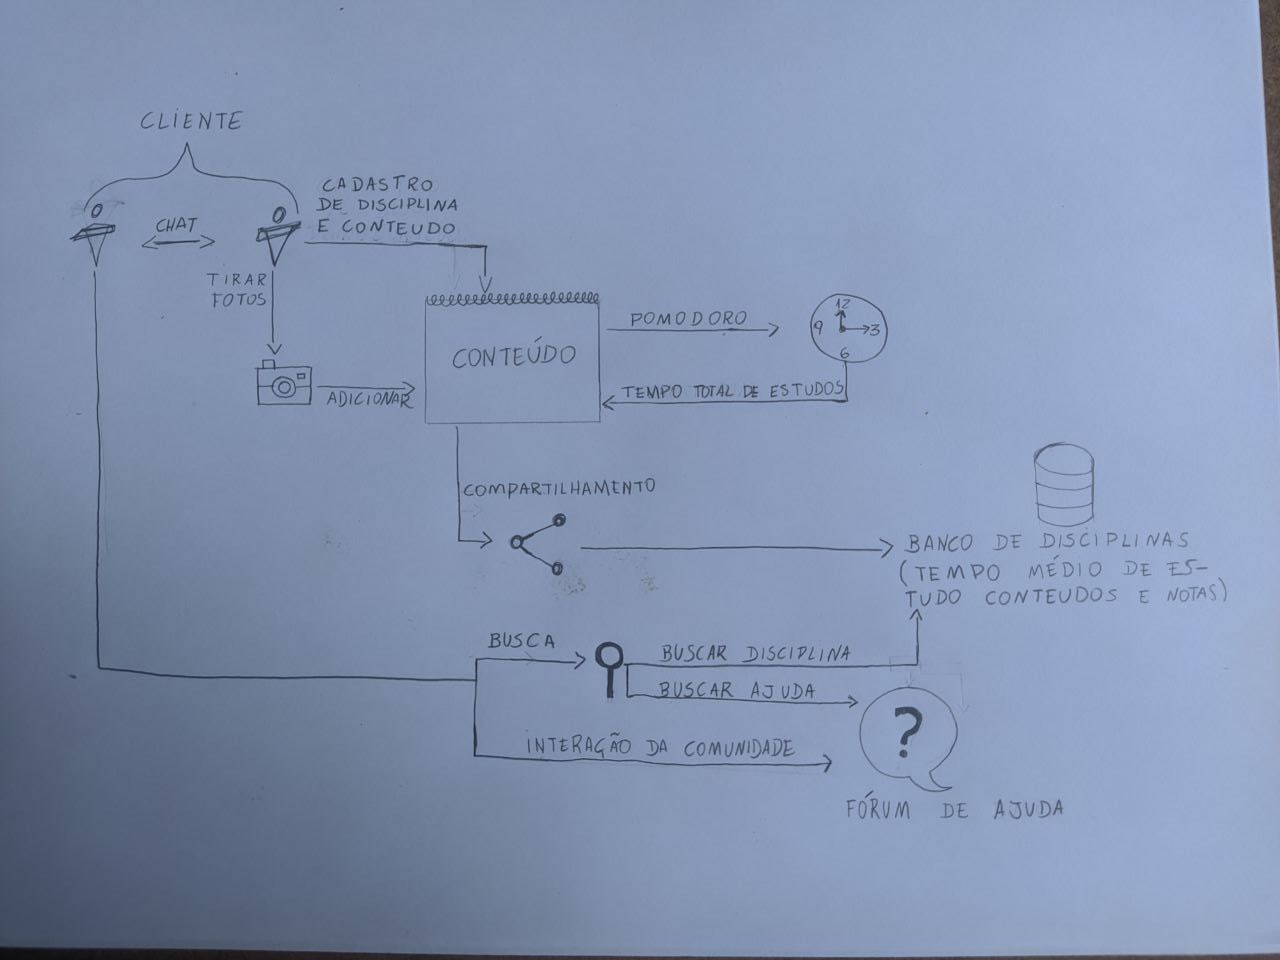 CLIENTE
CADASTRO
DE DISCIPLINA
E CONTEUDO
CHAT
TIRAR
FOTOS
ADICIONAR
CONTEÚDO
POMODORO
12
9
3
6
TEMPO TOTAL DE ESTUDOS
COMPARTILHAMENTO
BANCO DE DISCIPLINAS
(TEMPO MÉDIO DE ES-
TUDO CONTEUDOS E NOTAS)
BUSCA
BUSCAR DISCIPLINA
BUSCAR AJUDA
INTERAÇÃO DA COMUNIDADE
?
FÓRUM DE AJUDA